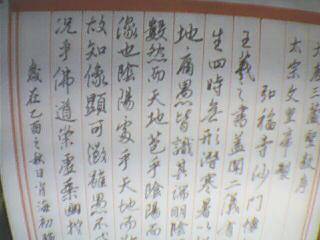 三藏聖教序
太宗文皇帝製
弘福寺沙門懷
王羲之書蓋聞二儀有
生四時無形潛寒暑以
地庸愚皆識其端明陰
數然而天地苞乎陰陽而
像也陰陽處乎天地而
故知像顯可徵雖愚不
況乎佛道崇虛乘幽控
歲在乙酉之秋日肖海初臨